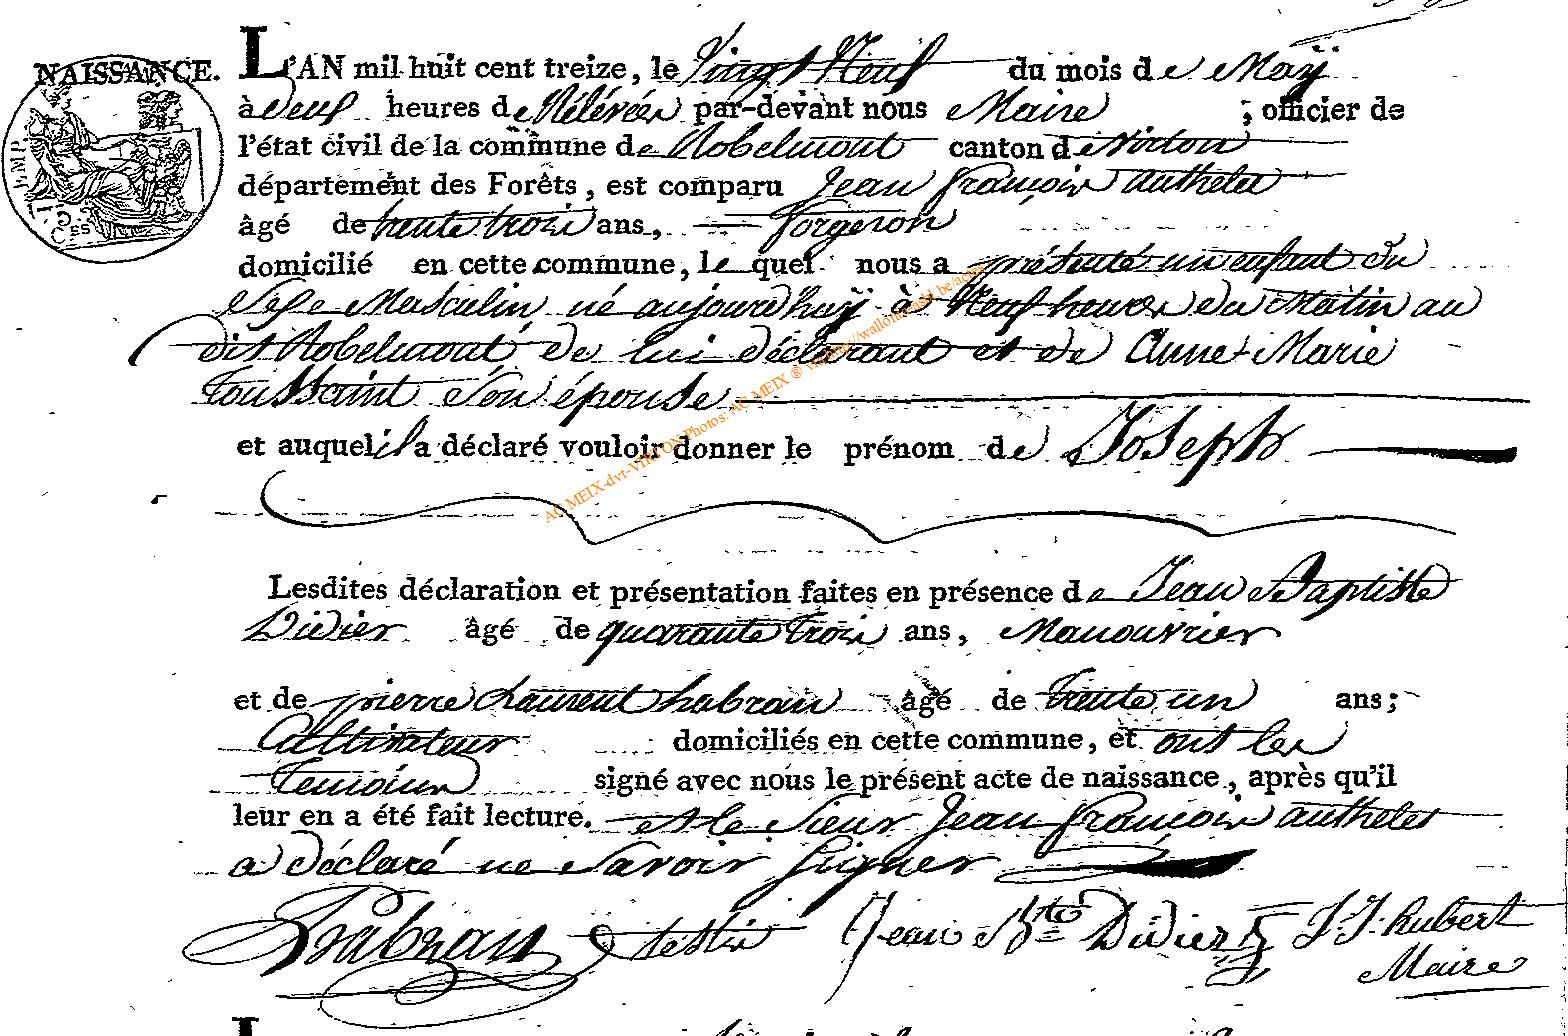 NAISSANCE. L'AN mil huit cent treize, le Vingt Neuf du mois de Maÿ
à deux heures de Rélévées par-devant nous Maire ; officier de
l'état civil de la commune de Robelmont canton de Virton
département des Forêts, est comparu Jean françois authelet
âgé de trente trois ans, forgeron
domicilié en cette commune, le quel nous a présenté un enfant du
Sexe Masculin né aujourd'huÿ à Neuf heures du Matin au
dit Robelmont de lui déclarant et de Anne Marie
toussaint Son épouse
et auquel il a déclaré vouloir donner le prénom de Joseph
Lesdites déclaration et présentation faites en présence de Jean Baptiste
Didier âgé de quarante trois ans, Manouvrier
et de pierre Laurent habran âgé de trente un ans;
Cultivateur domiciliés en cette commune, et ont les
temoins signé avec nous le présent acte de naissance, après qu'il
leur en a été fait lecture. et le Sieur Jean françois authelet
a déclaré ne Savoir Signer
habran Jean Bte Didier J.J. hubert
Maire
TIMP.
CES
AC MEIX-dvt-VIRTON Photos: AC MEIX ®